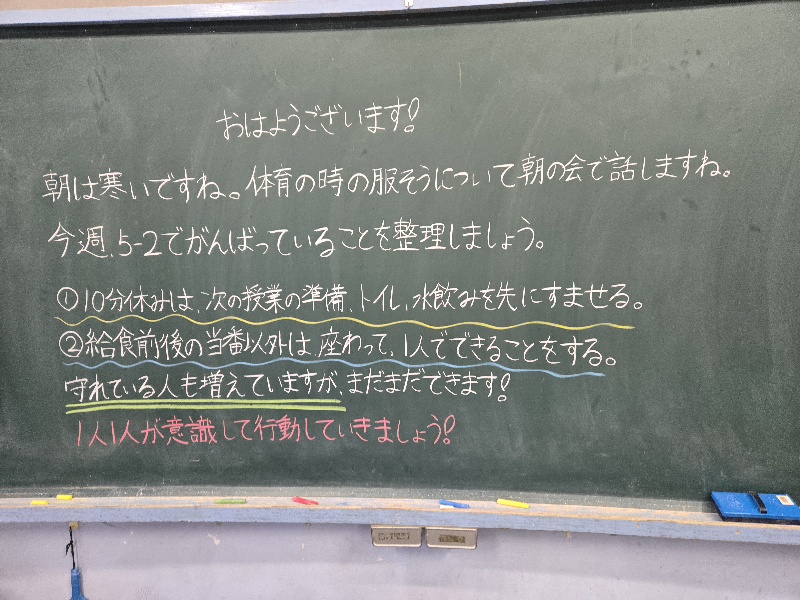 おはようございます!
朝は寒いですね。体育の時の服そうについて朝の会で話しますね。
今週、5-2でがんばっていることを整理しましょう。
①10分休みは、次の授業の準備、トイレ、水飲みを先にすませる。
②給食前後の当番以外は、座わって、1人でできることをする。
守れている人も増えていますが、まだまだできます!
1人1人が意識して行動していきましょう!